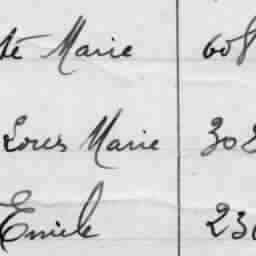 te Marie 608
Louis Marie 302
Emile 230